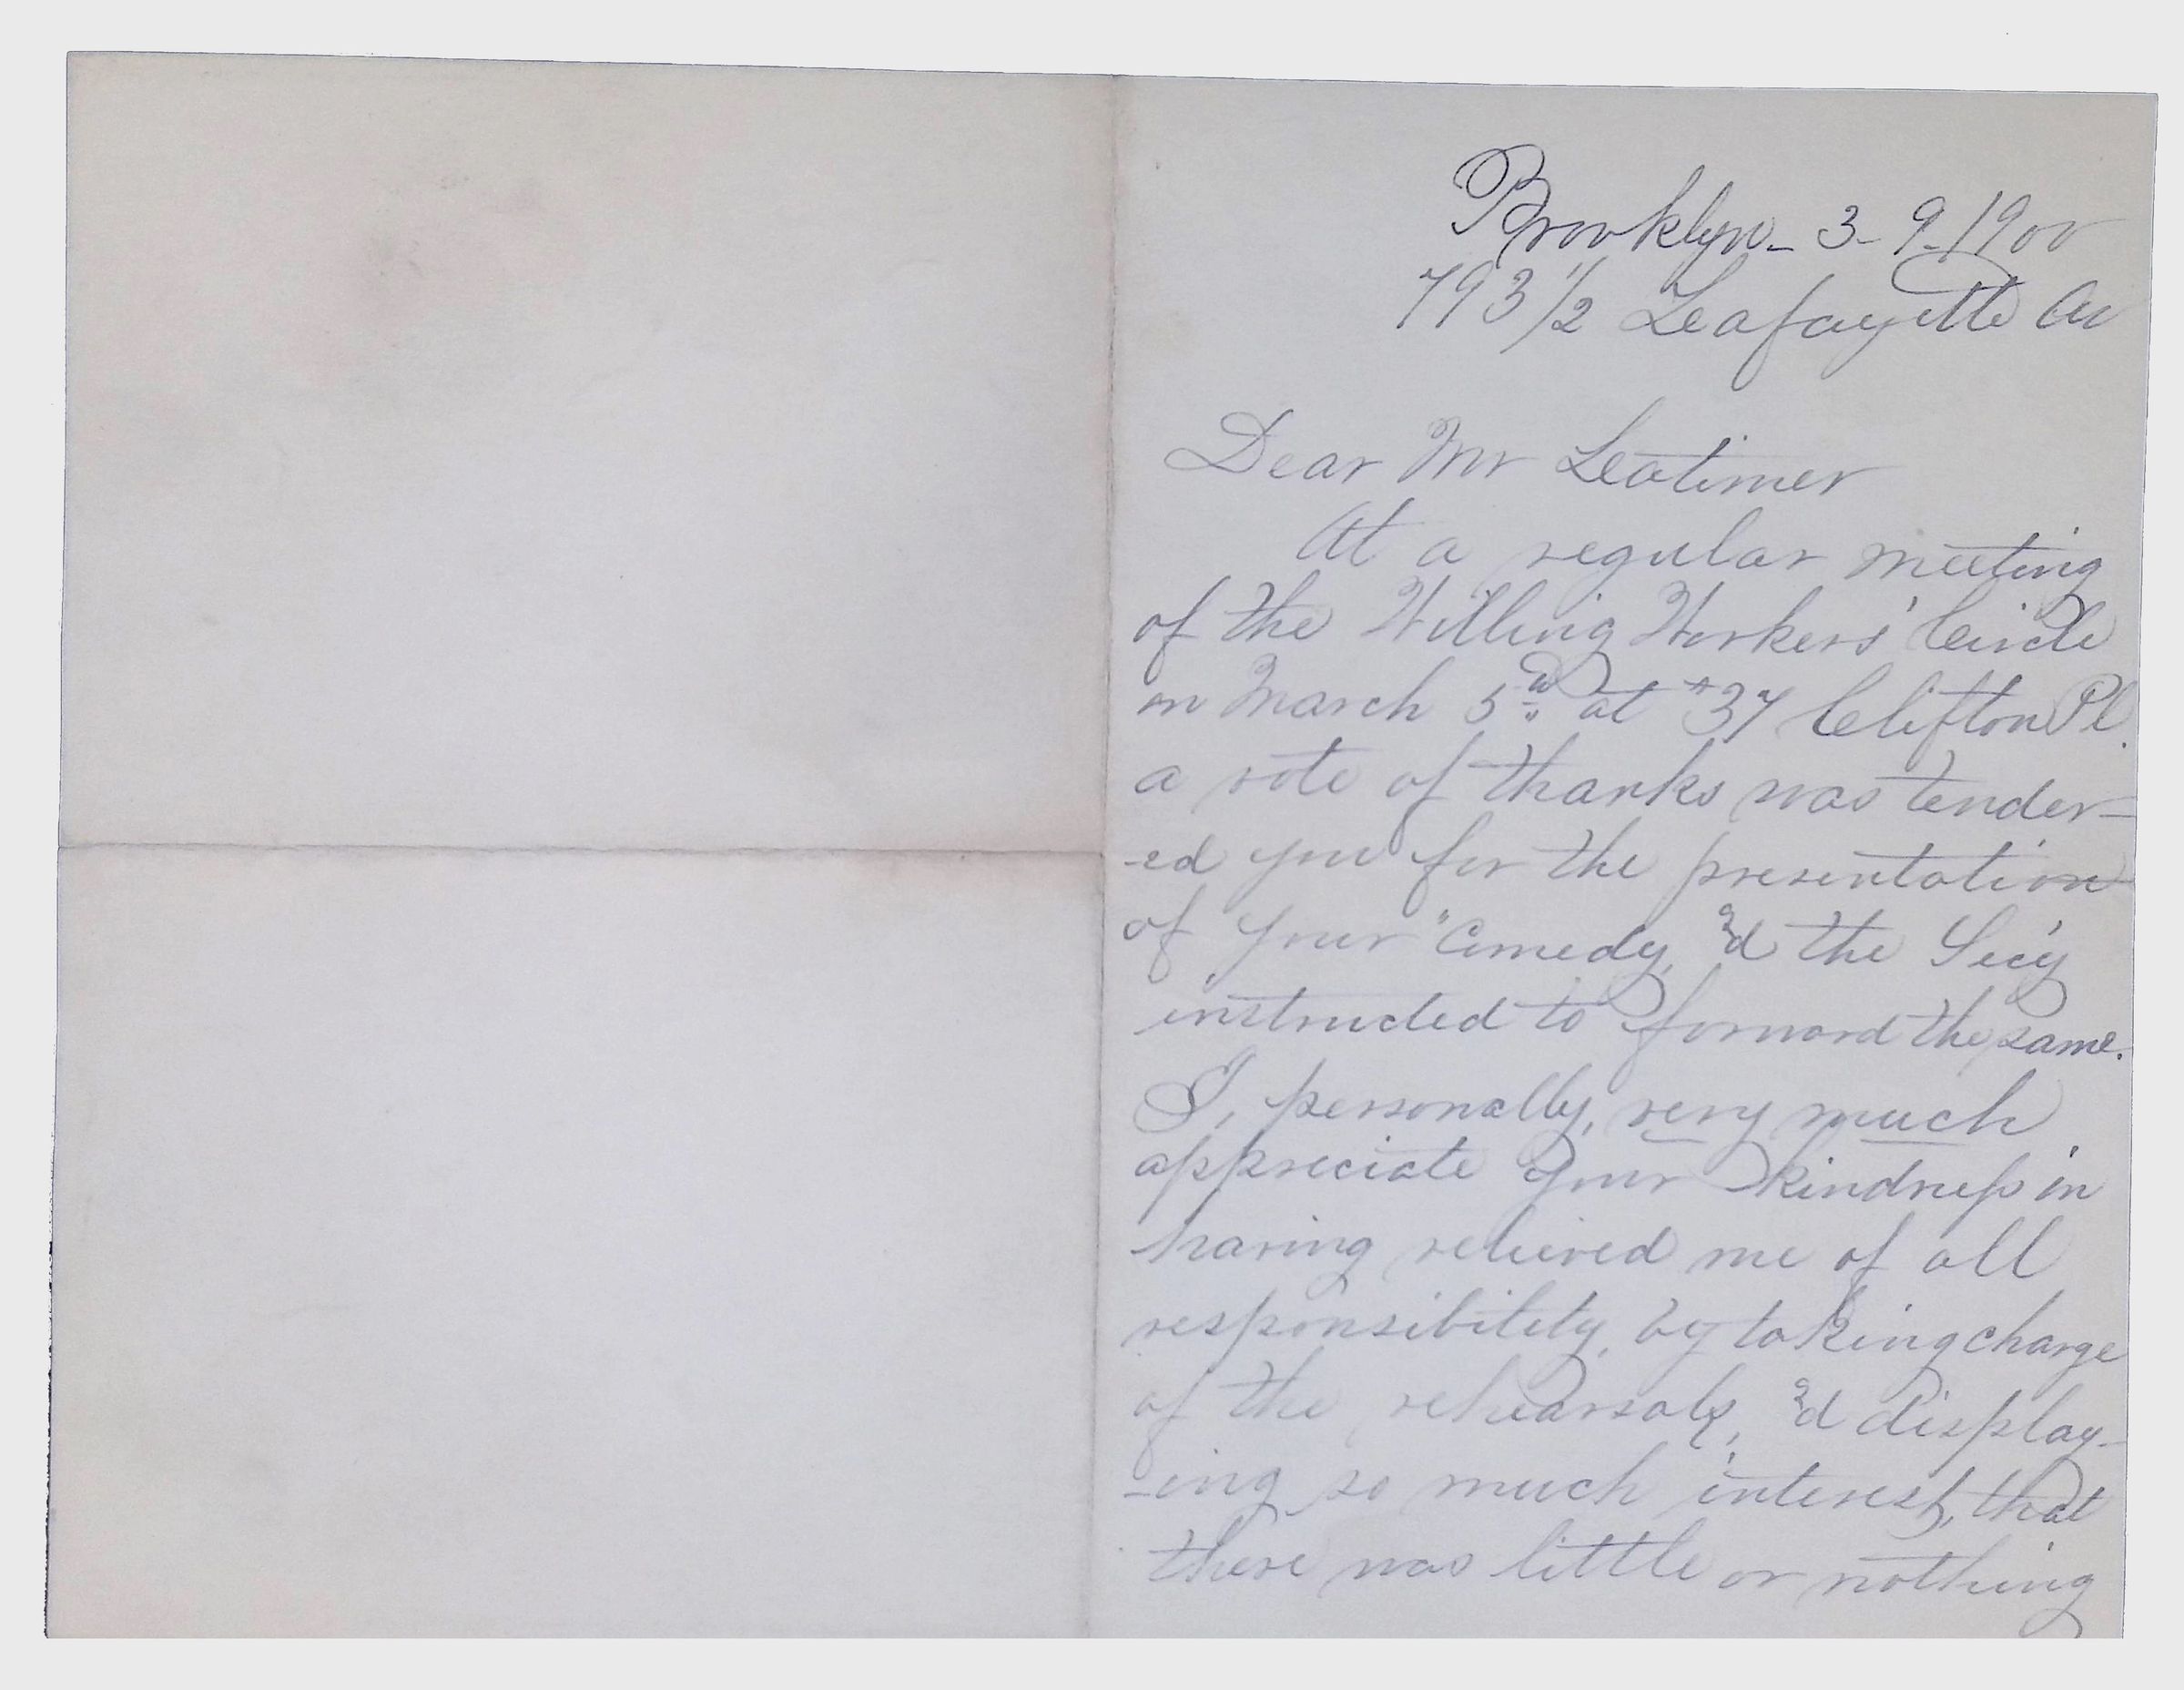 Brooklyn - 3-9-1900
793 1/2 Leafayette Av
Dear Mr Leatimer
At a regular meeting
of the Willing Workers' Circle
on March 5th at #37 Clifton Pl.
a vote of thanks was tender-
-ed you for the presentation
of your "Comedy, &d the Sec'y
instructed to forward the same.
I, personally, very much
appreciate your kindness in
having relieved me of all
responsibility, by taking charge
of the rehearsals, &d display-
-ing so much interest, that
there was little or nothing